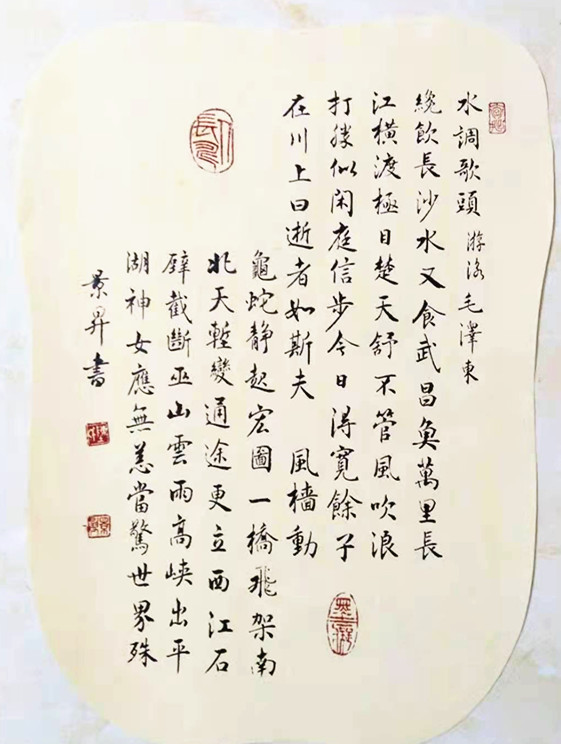 水調歌頭 游泳 毛澤東
纔飲長沙水又食武昌魚萬里長
江橫渡極目楚天舒不管風吹浪
打勝似閑庭信步今日得寬餘子
在川上曰逝者如斯夫 風檣動
龜蛇靜起宏圖一橋飛架南
北天塹變通途更立西江石
壁截斷巫山雲雨高峽出平
湖神女應無恙當驚世界殊
景昇書